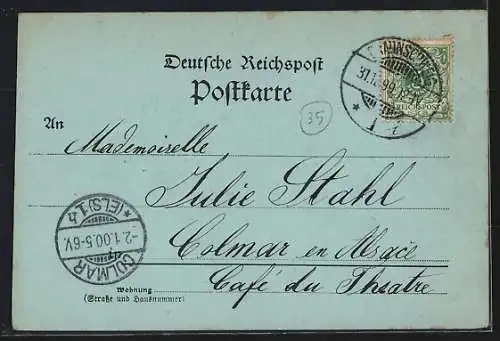 Deutsche Reichspost
Postkarte
35
An
Mademoiselle
Julie Stahl
Colmar en Alsace
Café du Theatre
Wohnung
(Straße und Hausnummer)
REICHSPOST
31.12.99
COLMAR
-2.1.00.5-6V.
*(ELS)1h